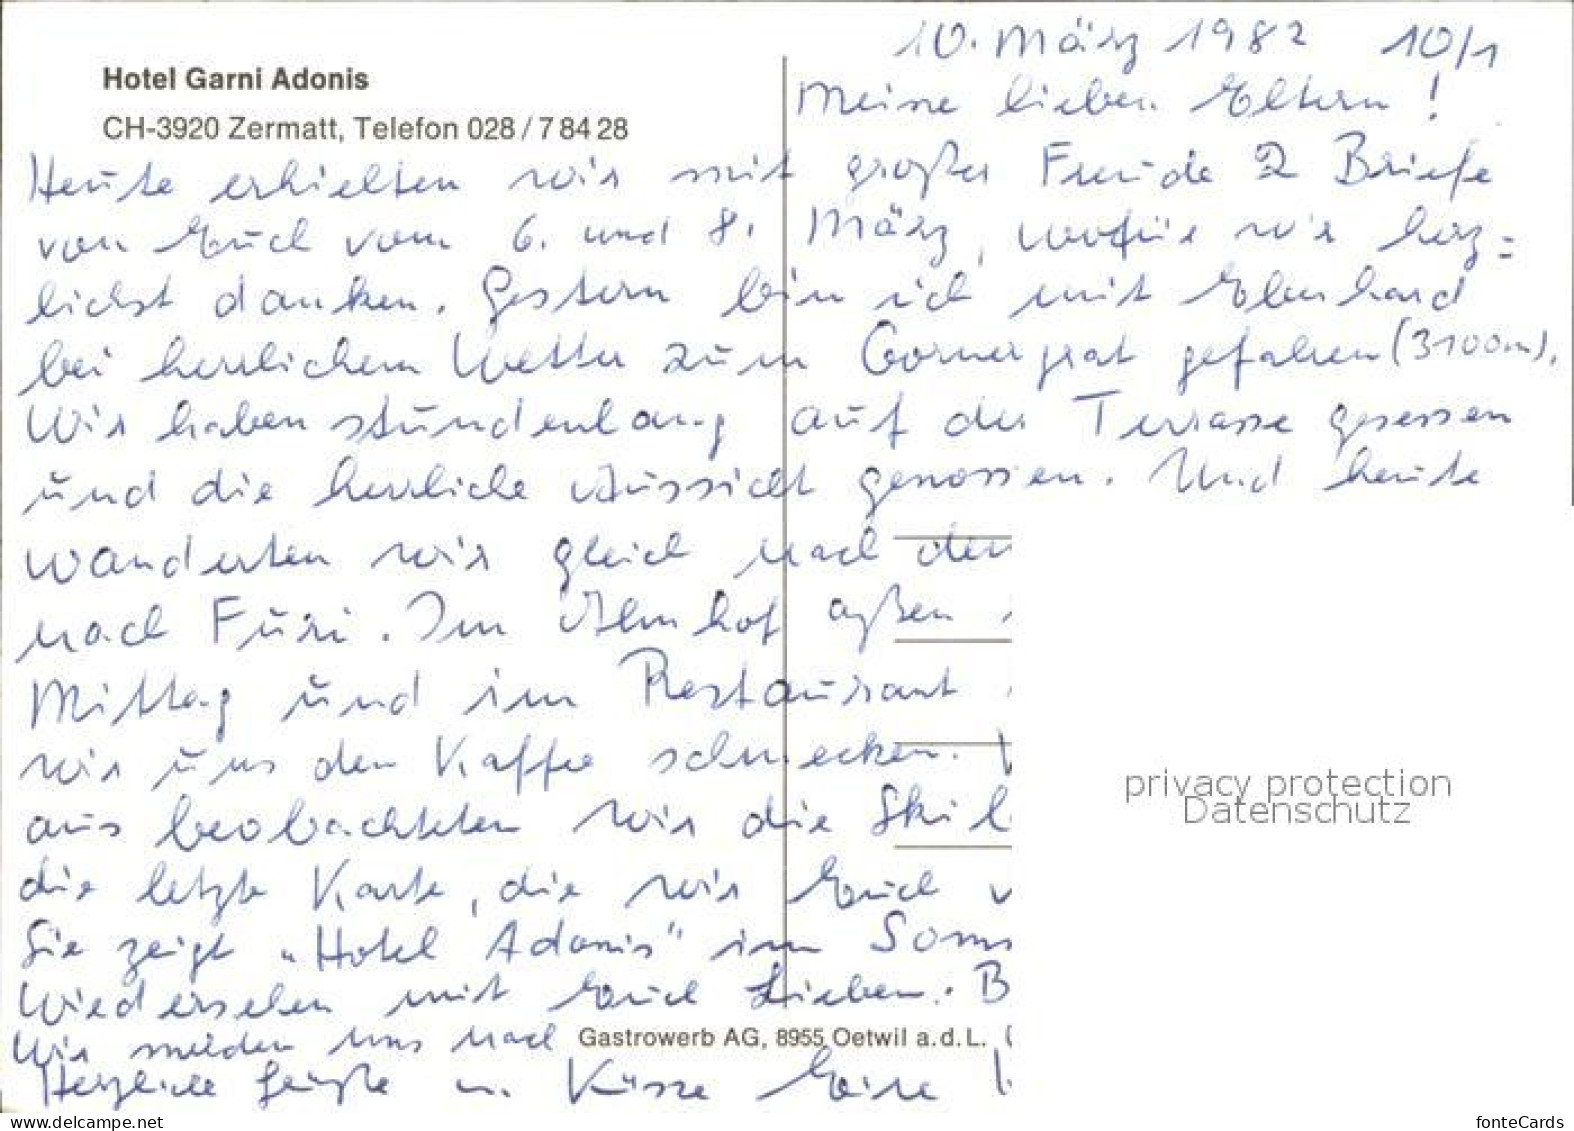 10. März 1982 10/1
Hotel Garni Adonis
CH-3920 Zermatt, Telefon 028 / 7 84 28
Meine lieben Eltern!
Heute erhielten wir mit großer Freude 2 Briefe
von Euch vom 6. und 8. März, wofür wir herz=
lichst danken. Gestern bin ich mit Eberhard
bei herrlichem Wetter zum Gornergrat gefahren (3100m).
Wir haben stundenlang auf der Terrasse gesessen
und die herrliche Aussicht genossen. Und heute
wanderten wir gleich nach dem
nach Furi. Im Almhof aßen
Mittag und im Restaurant
wir uns den Kaffee schmecken.
aus beobachteten wir die Skil
die letzte Karte, die wir Euch
Sie zeigt „Hotel Adonis" im Somm
Wiedersehen mit Euch Lieben. B
Wir melden uns nach
Gastrowerb AG, 8955 Oetwil a.d.L.
Herzliche Grüße u. Küsse Eure
privacy protection
Datenschutz
delcampe.net
fonteCards